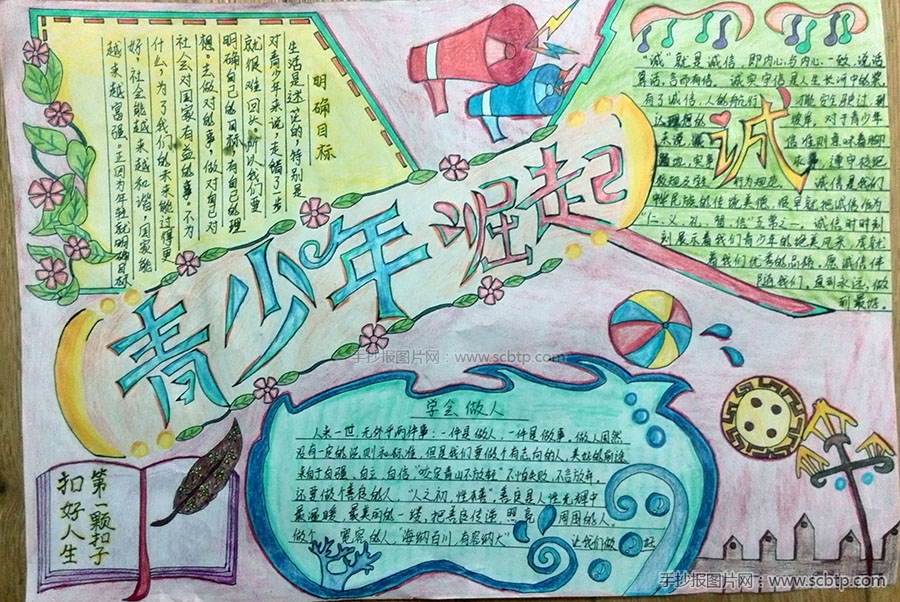 明确目标
生活是迷茫的，特别是
对青少年来说，走错了一步
就很难回头。所以我们要
明确自己的目标，有自己的理
想。去做对的事，做对自己对
社会对国家有益的事。不为
什么，为了我们的未来能过得更
好，社会能越来越和谐，国家能
越来越富强。正因为年轻就明确目标
诚
“诚”就是诚信，即内心与内心一致，说话
算话，言而有信。诚实守信是人生长河中的桨
有了诚信，人的航行 才能安全驶过，到
达理想的 彼岸。对于青少年
来说 信准则意味着脚
踏 实事 求事 遵守校纪
校规及 行为规范。 诚信是我们
中华民族的传统美德，很早就把诚信作为
“仁、义、礼、智、信”五常之一。诚信时时刻
刻展示着我们青少年的绝美风采，成就
着我们优秀的品格，愿诚信伴
随我们，直到永远，做
到最好。
青少年崛起
手抄报图片网：www.scbtp.com
学会做人
人来一世，无外乎两件事：一件是做人，一件是做事。做人固然
没有一定的法则和标准，但是我们要做个有志向的人，美好的前途
来自于自强、自立、自信“咬定青山不放松”不怕失败，不言放弃。
还要做个善良的人，“人之初，性本善”，善良是人性光辉中
最温暖、最美丽的一缕，把善良传递，照亮 周围的人。
做个 宽容的人，“海纳百川，有容乃大” 让我们做
第一颗扣子
扣好人生
手抄报图片网：www.scbtp.com